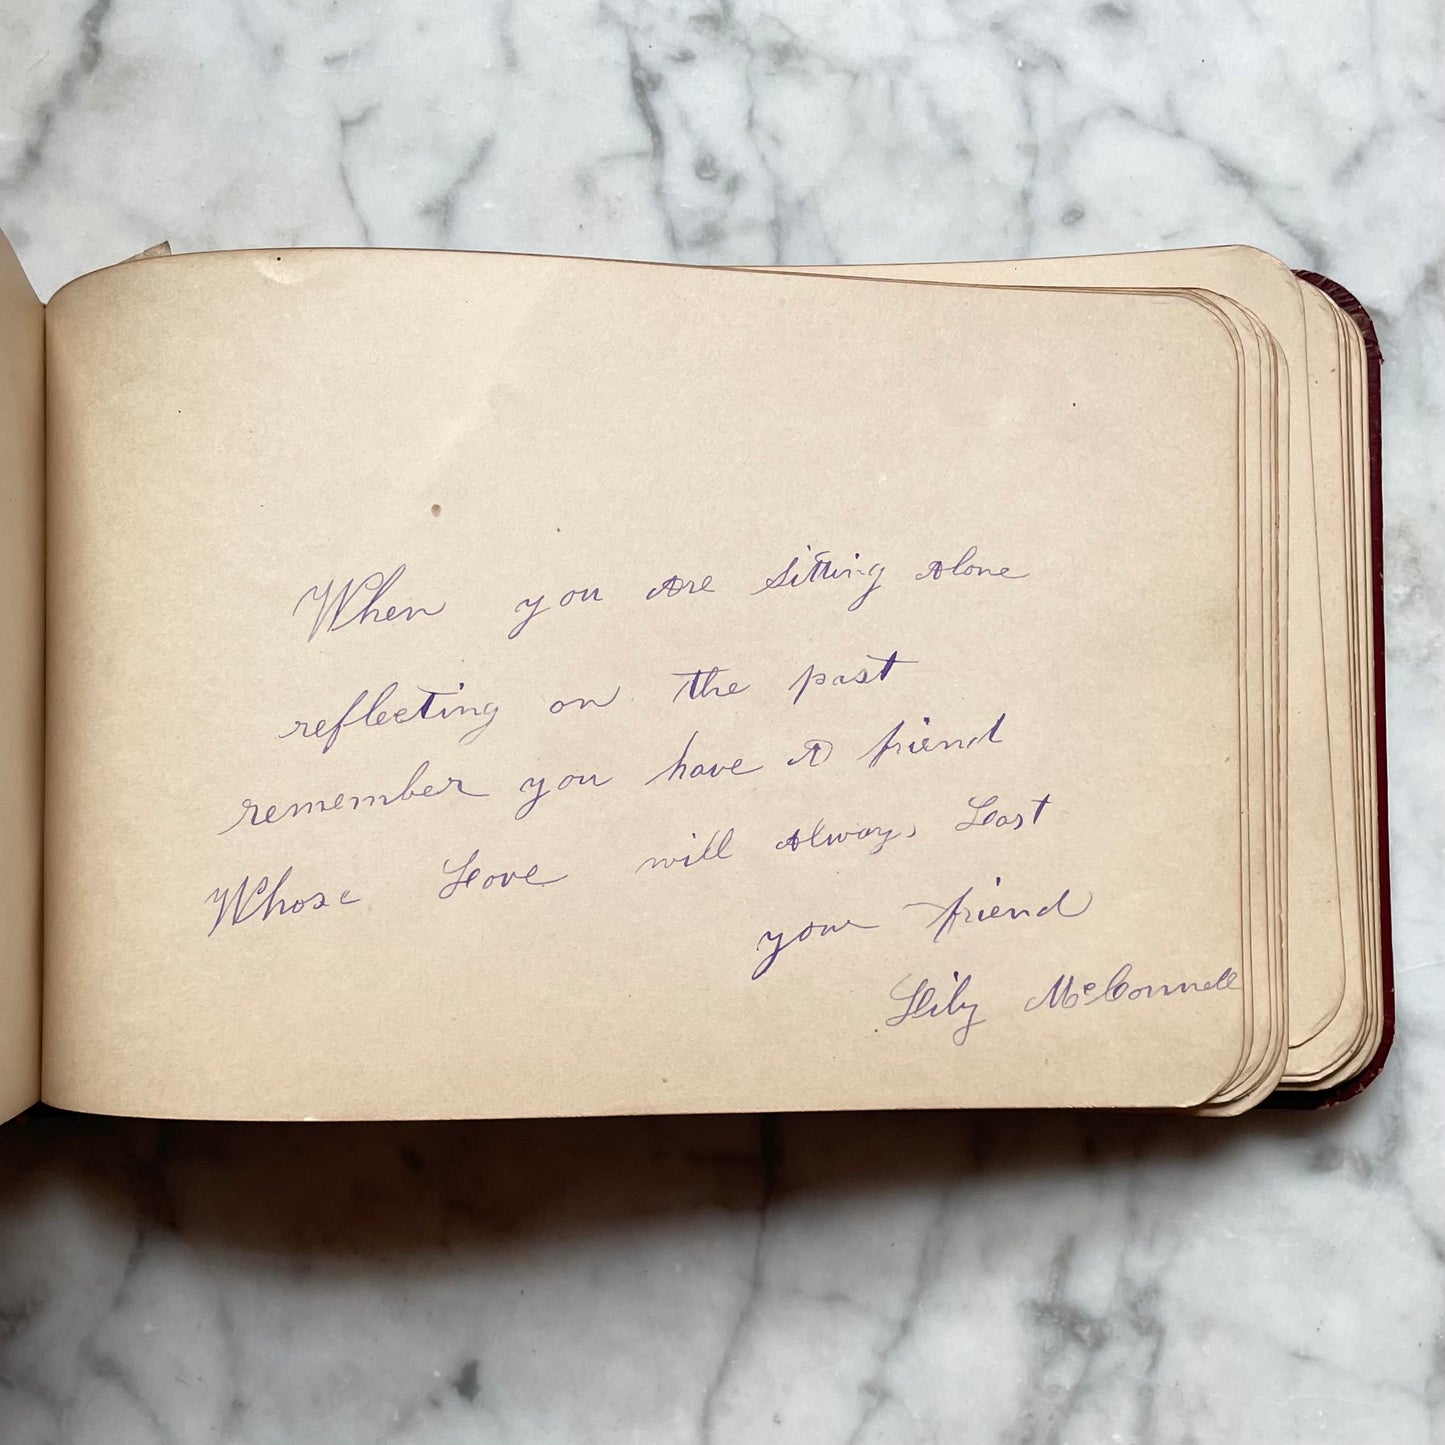 When you are sitting alone
reflecting on the past
remember you have a friend
Whose Love will always Last
your friend
Lily McConnell